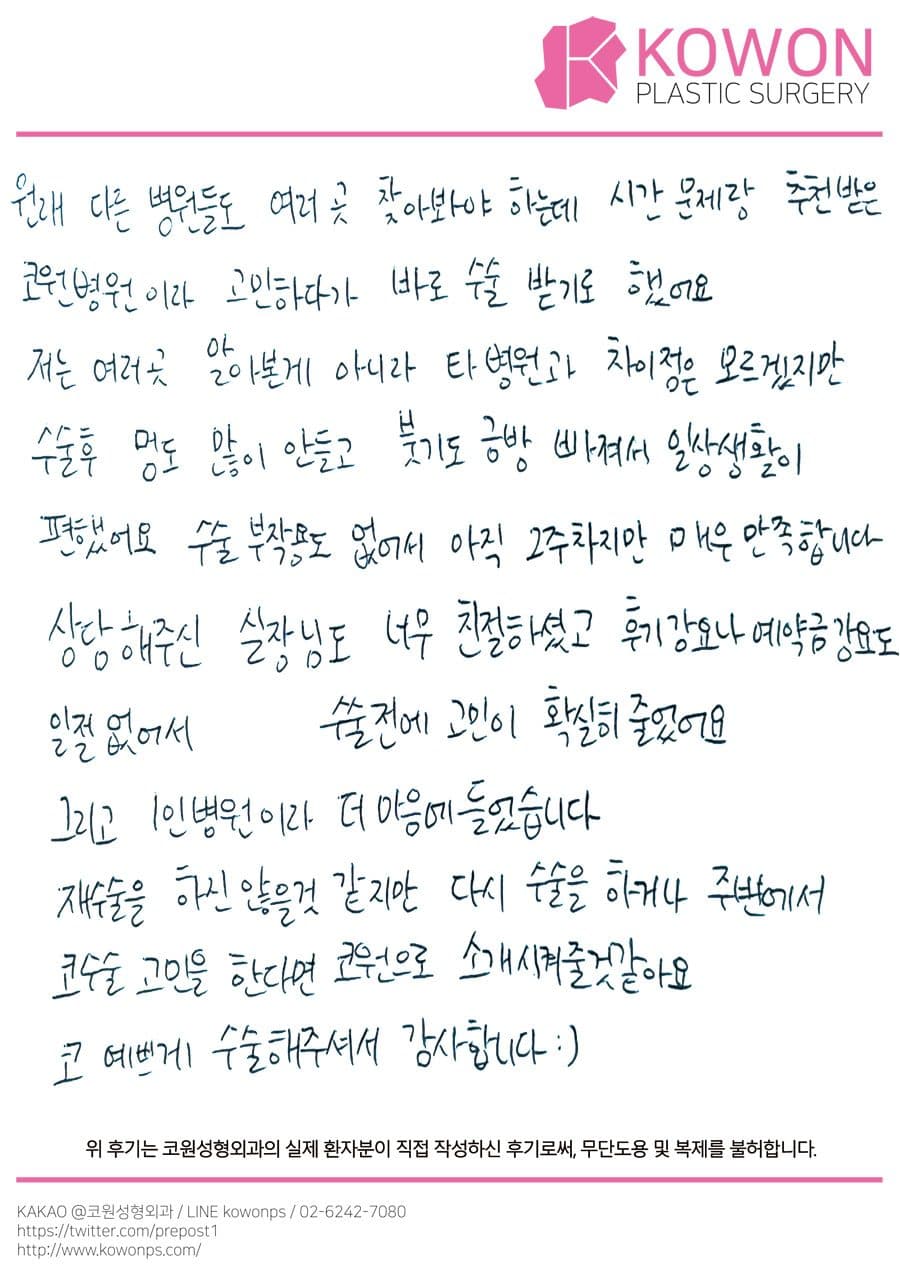 KOWON
PLASTIC SURGERY
원래 다른 병원들도 여러 곳 찾아봐야 하는데 시간 문제랑 추천받은
코원병원이라 고민하다가 바로 수술 받기로 했어요
저는 여러곳 알아본게 아니라 타 병원과 차이점은 모르겠지만
수술후 멍도 많이 안들고 붓기도 금방 빠져서 일상생활이
편했어요 수술 부작용도 없어서 아직 2주차지만 매우 만족합니다
상담해주신 실장님도 너무 친절하셨고 후기강요나 예약금강요도
일절 없어서 수술전에 고민이 확실히 줄었어요
그리고 1인병원이라 더 마음에 들었습니다
재수술을 하진 않을것 같지만 다시 수술을 하거나 주변에서
코수술 고민을 한다면 코원으로 소개시켜줄것같아요
코 예쁘게 수술해주셔서 감사합니다 :)
위 후기는 코원성형외과의 실제 환자분이 직접 작성하신 후기로써, 무단도용 및 복제를 불허합니다.
KAKAO @코원성형외과 / LINE kowonps / 02-6242-7080
https://twitter.com/prepost1
http://www.kowonps.com/